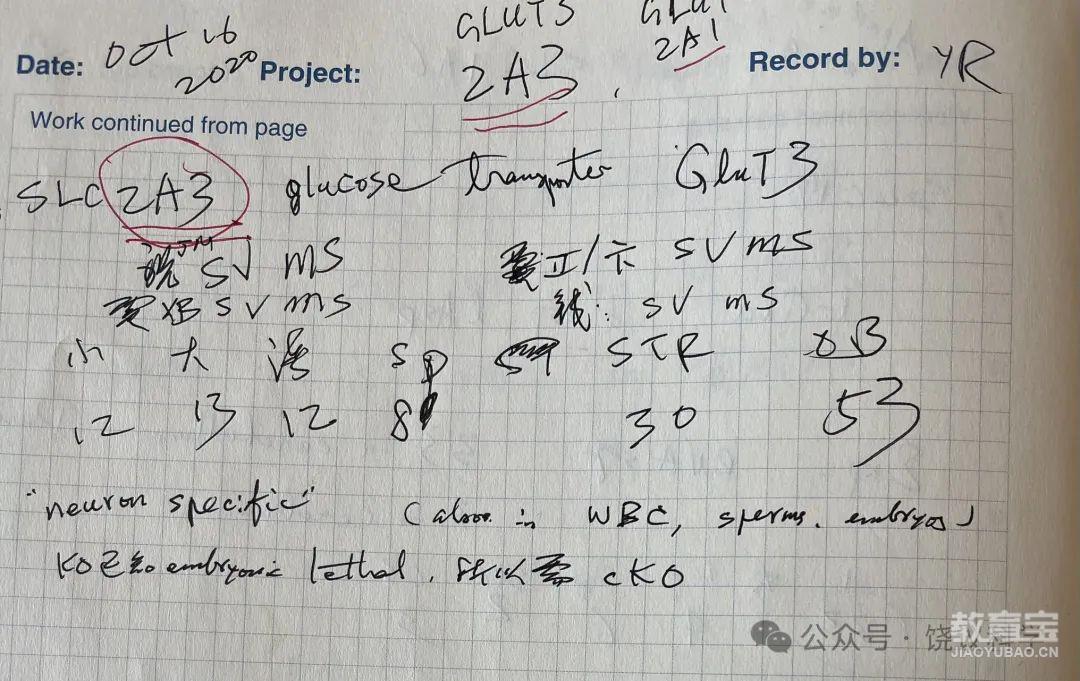 GLUT3 GLUT
Date: Oct 16 2020 Project: 2A3, 2A1 Record by: YR
Work continued from page
SLC2A3 glucose transporter GluT3
SV MS SV MS
XB SV MS 线: SV MS
小 大 SP STR XB
12 13 12 8 30 53
"neuron specific" (also in WBC, sperms, embryos)
KO已知 embryonic lethal, 所以需 cKO
公众号·饶议科学
教育宝
JIAOYUBAO.CN